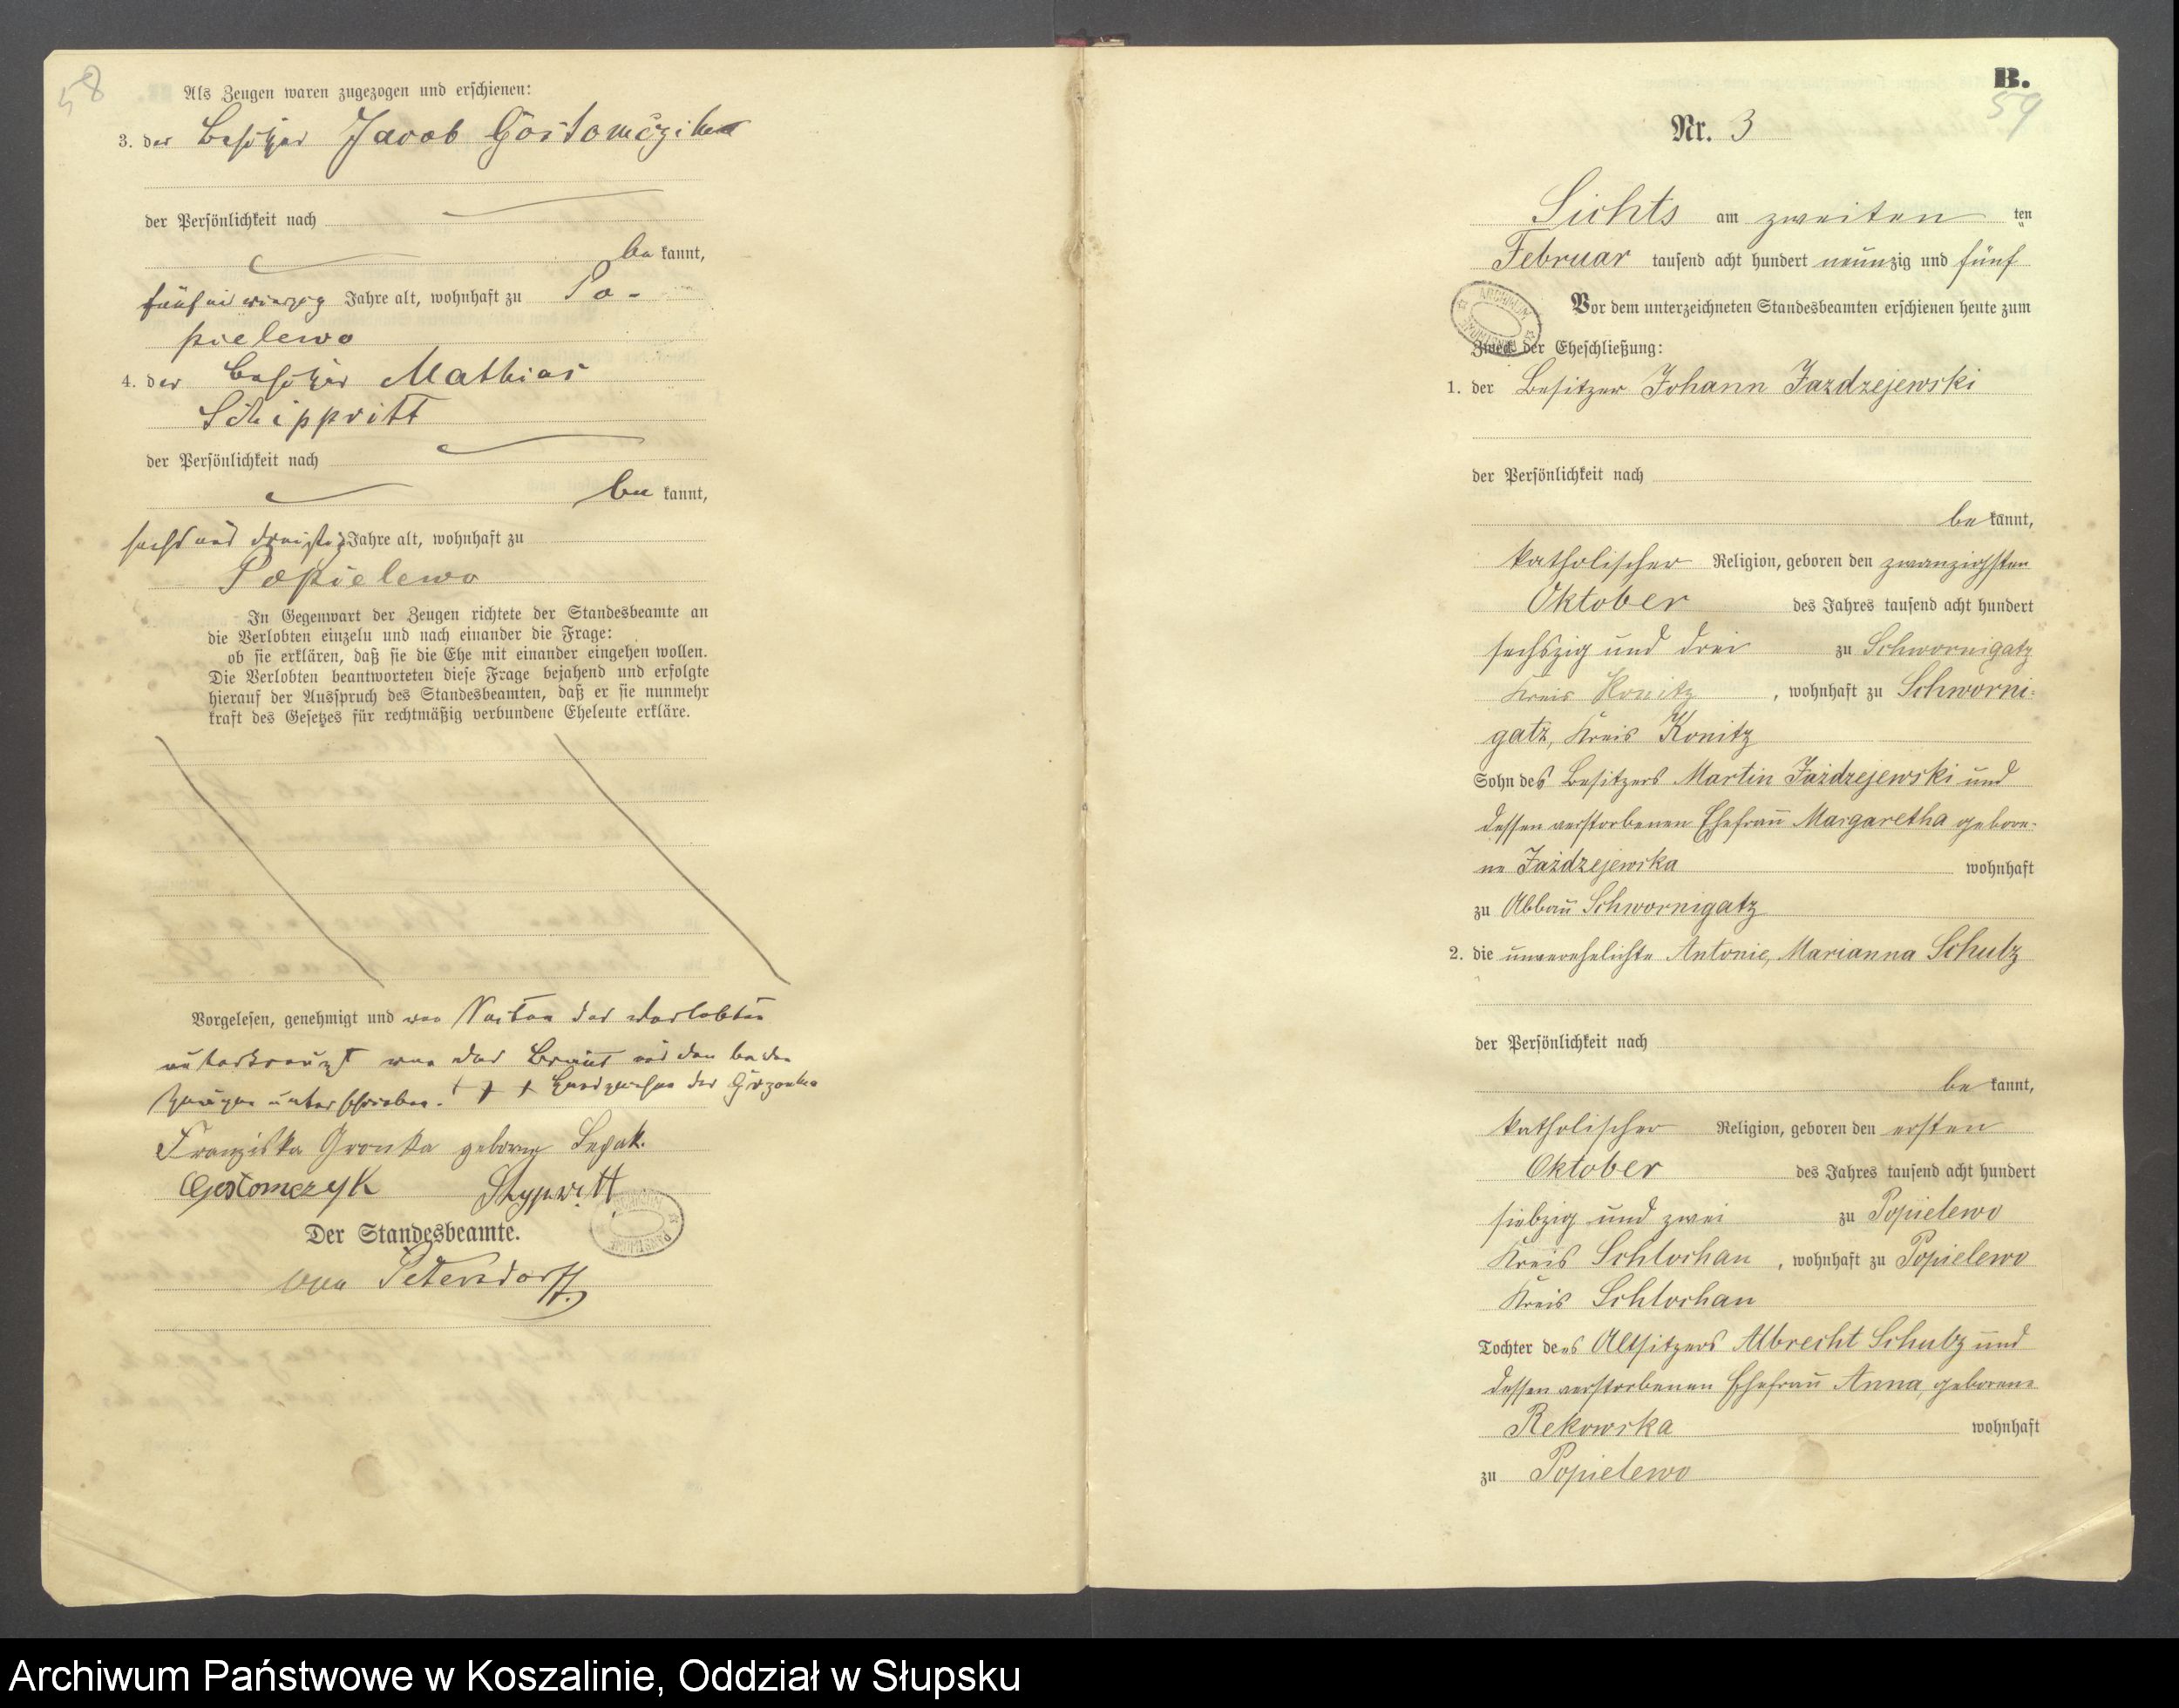 58
Als Zeugen waren zugezogen und erschienen:
3. der Besitzer Jacob Gostomczik
der Persönlichkeit nach
be kannt,
fünf und vierzig Jahre alt, wohnhaft zu Po-
pielewo
4. der Besitzer Mathias
Schippritt
der Persönlichkeit nach
be kannt,
sechs und dreißig Jahre alt, wohnhaft zu
Popielewo
In Gegenwart der Zeugen richtete der Standesbeamte an
die Verlobten einzeln und nach einander die Frage:
ob sie erklären, daß sie die Ehe mit einander eingehen wollen.
Die Verlobten beantworteten diese Frage bejahend und erfolgte
hierauf der Ausspruch des Standesbeamten, daß er sie nunmehr
kraft des Gesetzes für rechtmäßig verbundene Eheleute erkläre.
Vorgelesen, genehmigt und von Seiten des Verlobten
unterkreuzt von der Braut und den beiden
Zeugen unterschrieben. + + + Handzeichen des
Franziska Gronka geborene
Gostomczyk
Der Standesbeamte.
von Petersdorff
B.
59
Nr. 3
Lichts am zweiten ten
Februar tausend acht hundert neunzig und fünf
Vor dem unterzeichneten Standesbeamten erschienen heute zum
Zweck der Eheschließung:
1. der Besitzer Johann Jazdzejewski
der Persönlichkeit nach
be kannt,
katholischer Religion, geboren den zwanzigsten
Oktober des Jahres tausend acht hundert
sechszig und drei zu Schwornigatz
Kreis Konitz, wohnhaft zu Schworni-
gatz, Kreis Konitz
Sohn des Besitzers Martin Jazdzejewski und
dessen verstorbenen Ehefrau Margaretha gebore-
ne Jazdzejewska wohnhaft
zu Abbau Schwornigatz
2. die unverehelichte Antonie, Marianna Schulz
der Persönlichkeit nach
be kannt,
katholischer Religion, geboren den ersten
Oktober des Jahres tausend acht hundert
siebzig und zwei zu Popielewo
Kreis Schlochau, wohnhaft zu Popielewo
Kreis Schlochau
Tochter des Altsitzers Albrecht Schulz und
dessen verstorbenen Ehefrau Anna, geborene
Rekowska wohnhaft
zu Popielewo
Archiwum Państwowe w Koszalinie, Oddział w Słupsku